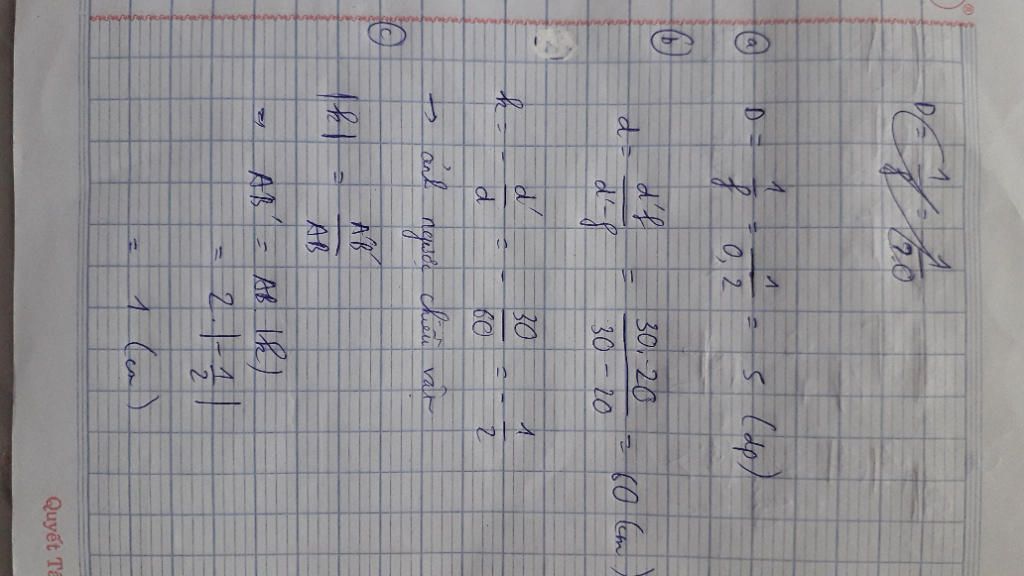 D = 1/f = 1/20
ⓐ D = 1/f = 1/0,2 = 5 (dp)
ⓑ d = d'f/d'-f = 30.20/30-20 = 60 (cm)
k = - d'/d = - 30/60 = - 1/2
→ ảnh ngược chiều vật
ⓒ |k| = A'B'/AB
⇒ AB' = AB.|k|
= 2.|-1/2|
= 1 (cm)
Quyết Tâ